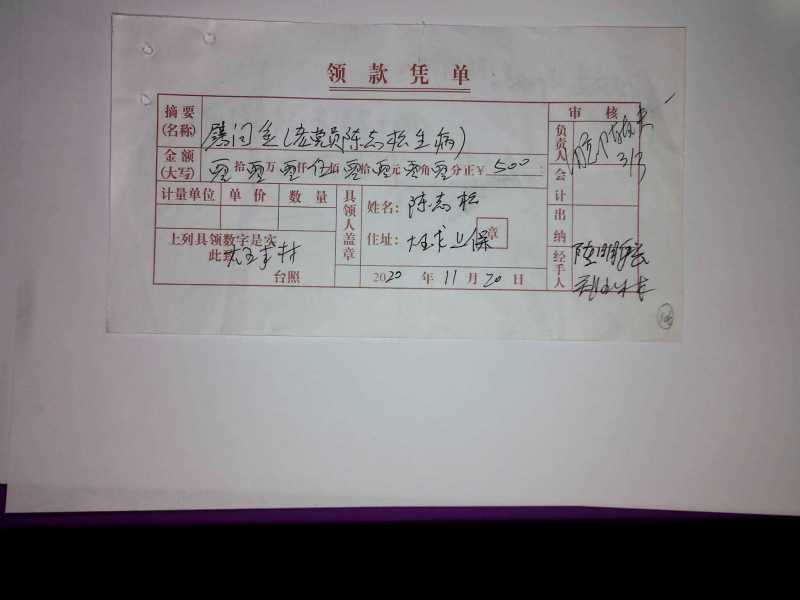 领款凭单
摘要(名称) 慰问金(老党员陈志松生病)
金额(大写) 零拾零万零仟伍佰零拾零元零角零分正¥500
计量单位 单价 数量
具领人盖章
姓名:陈志松
住址:
章
上列具领数字是实
此致
台照
2020年11月20日
审核
负责人
3/3
会计
出纳
经手人